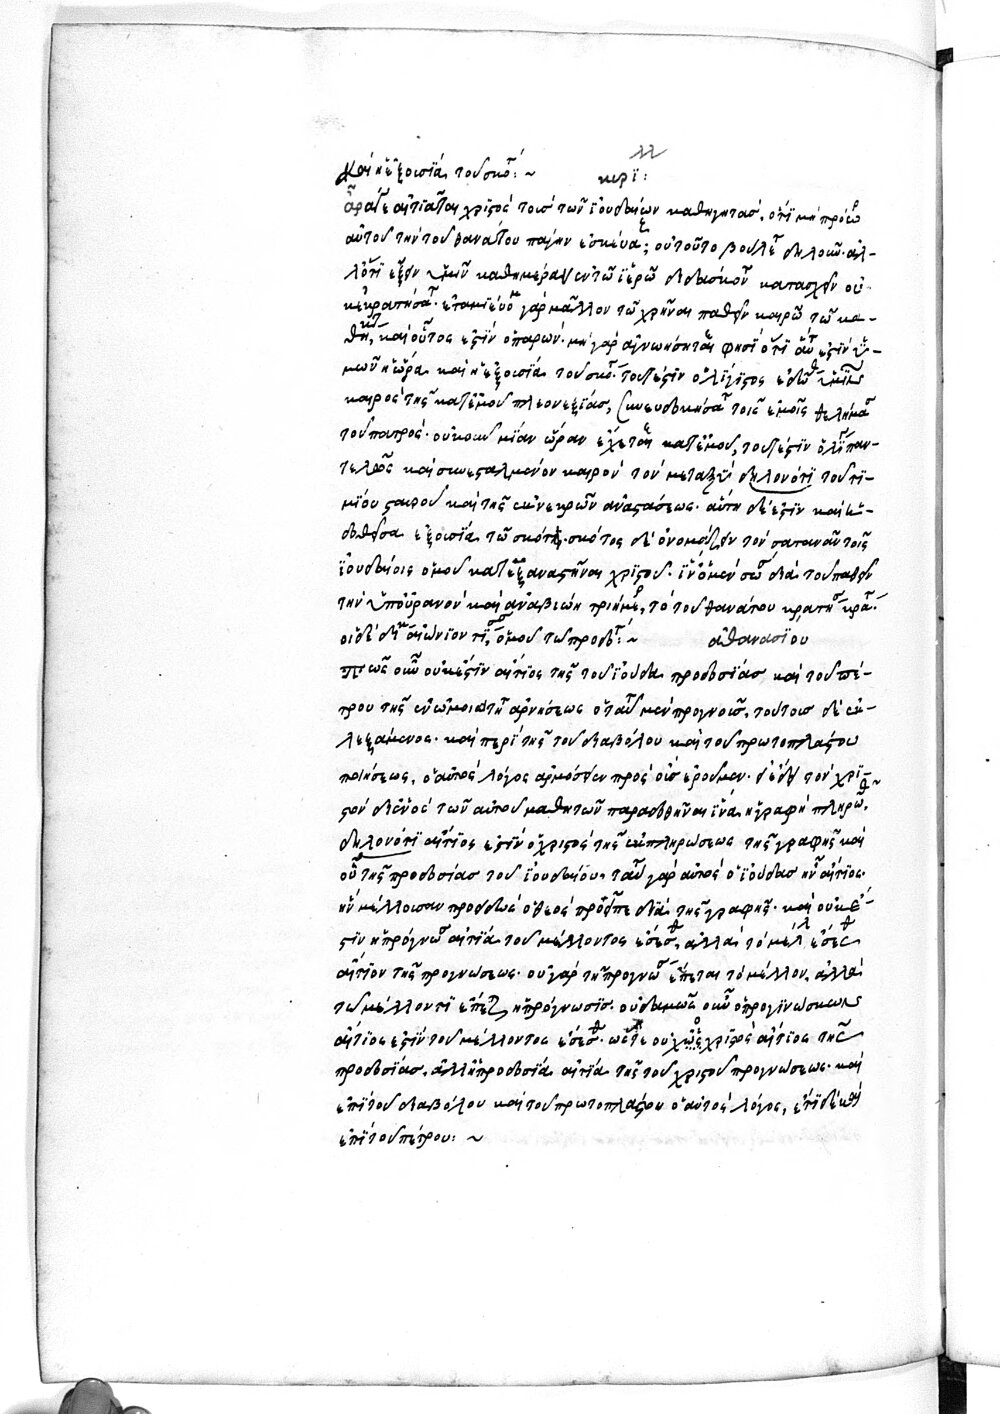 καὶ ἡ ἐξουσία τοῦ σκό: ~ κυρί:
ἆρα αἰτιᾶται χριστὸς τοὺς τῶν ἰουδαίων καθηγητὰς, ὅτι μὴ πρὸ
αὐτοῦ τὴν τοῦ θανάτου πάγην ἐσκεύα; οὐ τοῦτο βούλε δηλοῦν· ἀλ-
λ' ὅτι ἐξῆν ὑμῖν καθημέραν ἐν τῶ ἱερῶ διδάσκον κατασχεῖν οὐ
κεκρατήσα. ἐταμιεύο γὰρ μᾶλλον τῶ χρῆναι παθεῖν καιρῶ τῶ κα-
θή, καὶ οὗτος ἐστὶν ὁ παρών· μὴ γὰρ ἀγνοήσητε φησὶ ὅτι αὕ ἐστὶν ὑ-
μῶν ἡ ὥρα καὶ ἡ ἐξουσία τοῦ σκό. τουτέστιν ὀλίγιστος ἐδό ὑμῖν
καιρὸς τῆς κατ' ἐμοῦ πλεονεξίας, συνευδοκήσα τοῖς ἐμοῖς θελήμα
τοῦ πατρός· οὐκοῦν μίαν ὥραν ἔχετε κατ' ἐμοῦ, τουτέστιν ὀλί παν-
τελῶς καὶ συνεσταλμένον καιρὸν τὸν μεταξὺ δηλονότι τοῦ τι-
μίου σταυροῦ καὶ τῆς ἐκ νεκρῶν ἀναστάσεως· αὕτη δέ ἐστιν καὶ ἡ
δοθεῖσα ἐξουσία τῶ σκότει. σκότος δὲ ὀνομάζειν τὸν σατανᾶν τοῖς
ἰουδαίοις ὁμοῦ κατεξαναστῆναι χριστοῦ.
τὴν ὑπουράνον καὶ ἀναβιώη τριήμε, τὸ τοῦ θανάτου κρατη
οἱ δὲ δί αἰώνιον τί, ὁμοῦ τῶ προδό: ~ ἀθανασίου
Πῶς οὖν οὐκ ἔστιν αἴτιος τῆς τοῦ ἰούδα προδοσίας καὶ τοῦ πέ-
τρου τῆς ἐνωμότη ἀρνήσεως ὁ ταῦ μὲν προγνοὺς, τούτους δὲ ἐκ-
λεξάμενος· καὶ περὶ τῆς τοῦ διαβόλου καὶ τοῦ πρωτοπλάστου
ποιήσεως, ὁ αὐτὸς λόγος ἁρμόσειεν πρὸς οὓς ἐροῦμεν· δεῖν τὸν χρι-
στὸν διενὸς τῶν αὐτοῦ μαθητῶν παραδοθῆναι ἵνα ἡ γραφὴ πληρω,
δηλονότι αἴτιος ἐστὶν ὁ χριστὸς τῆς ἐκπληρώσεως τῆς γραφῆς καὶ
οὐ τῆς προδοσίας τοῦ ἰουδαίου· ταύ γὰρ αὐτὸς ὁ ἰούδας ἦν αἴτιος·
ἣν μέλλουσαν προϊδὼς ὁ θεὸς προεῖπε διὰ τῆς γραφῆς· καὶ οὐκ ἔ-
στιν ἡ πρόγνω αἰτία τοῦ μέλλοντος ἔσεσθ, ἀλλὰ τὸ μέλ ἔσεσθ
αἴτιον τῆς προγνώσεως· οὐ γὰρ τῆ προγνώ ἕπεται τὸ μέλλον, ἀλλὰ
τῶ μέλλοντι ἕπε ἡ πρόγνωσις. οὐδαμῶς οὖν ὁ προγινώσκων
αἴτιος ἐστὶν τοῦ μέλλοντος ἔσεσθ· ὥστε οὐχ ὁ χριστὸς αἴτιος τῆς
προδοσίας, ἀλλ' ἡ προδοσία αἰτία τῆς τοῦ χριστοῦ προγνώσεως· καὶ
ἐπὶ τοῦ διαβόλου καὶ τοῦ πρωτοπλάστου ὁ αὐτὸς λόγος, ἔτι δὲ καὶ
ἐπὶ τοῦ πέτρου: ~